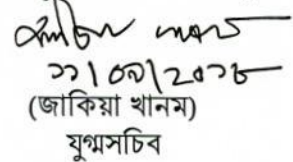 ১১/০৭/২০১৮
(জাকিয়া খানম)
যুগ্মসচিব